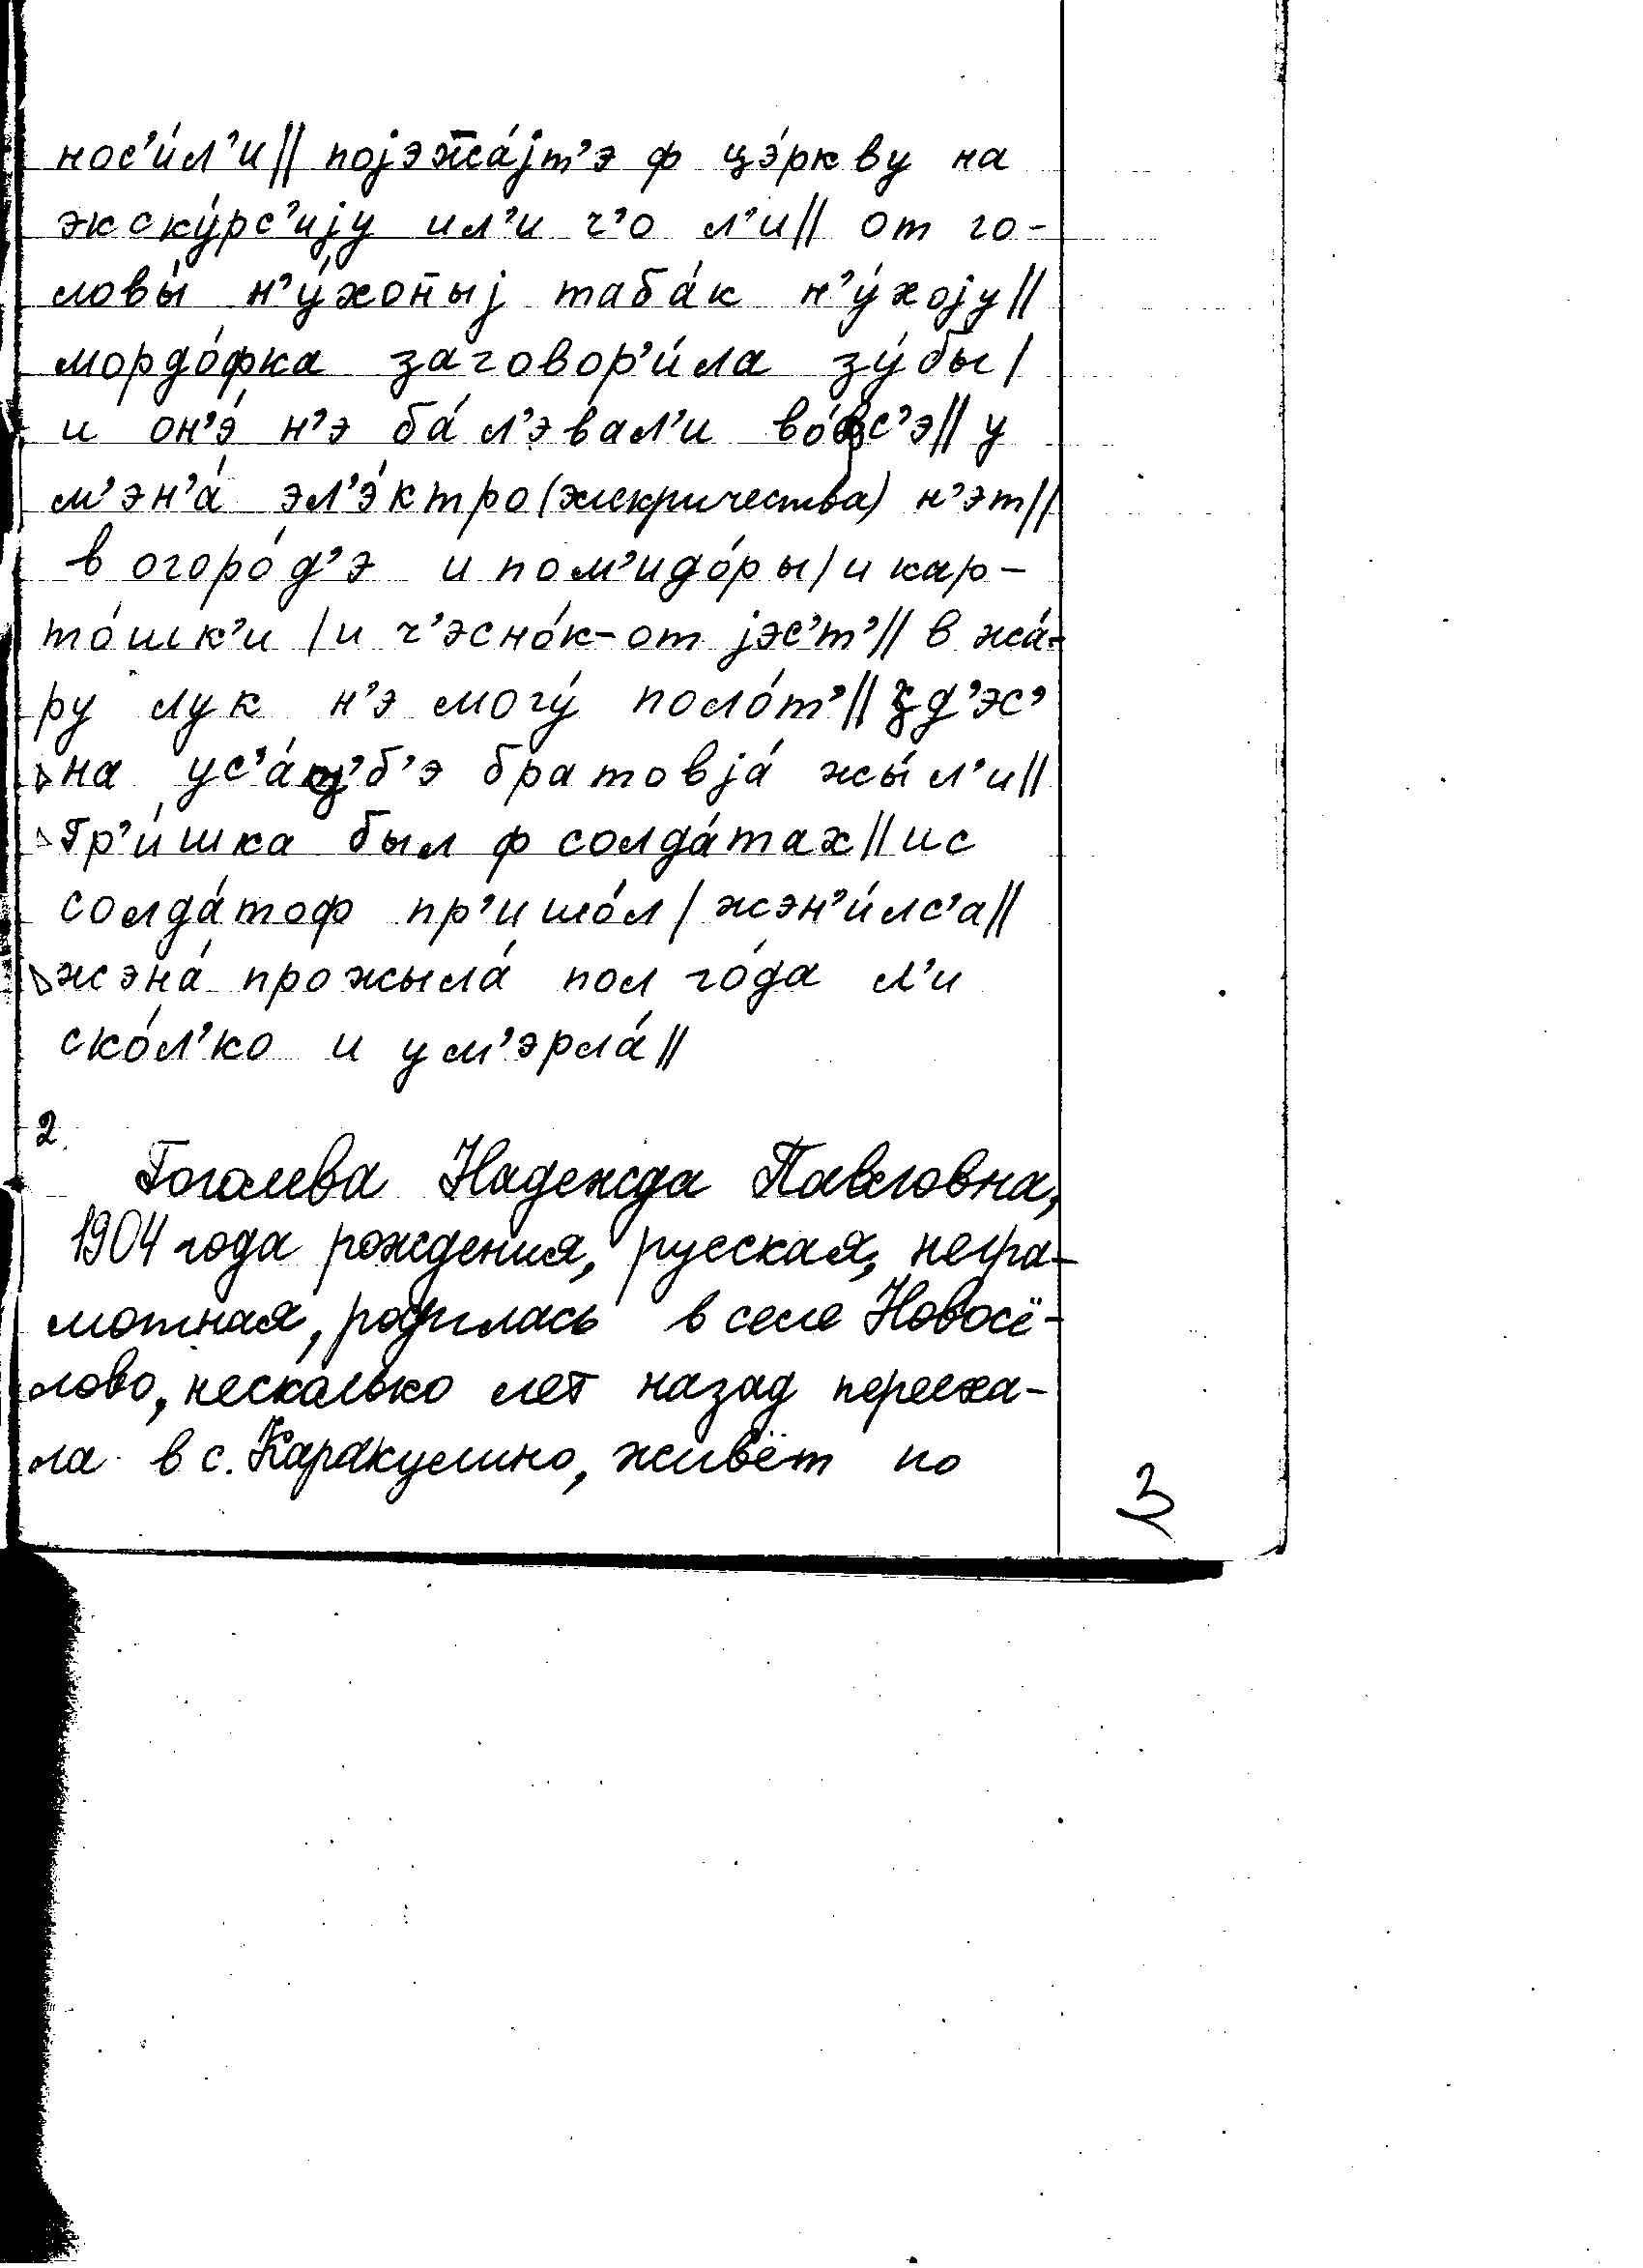 нос’и́л’и|| појэж̄а́јт’э ф цэ́ркву на
экску́рс’ију ил’и ч’о л’и|| от го-
ловы́ н’у́хон̄ыј таба́к н’у́хоју||
мордо́фка заговор’и́ла зу́бы|
и он’э́ н’э ба́л’эвал’и во́фс’э|| у
м’эн’а́ эл’э́ктро (элекричества) н’эт||
в огоро́д’э и пом’идо́ры| и кар-
то́шк’и | и ч’эсно́к-от јэс’т’|| в жа́-
ру лук н’э могу́ поло́т’|| з’д’эс’
на ус’а́д’б’э братовја́ жы́л’и||
Гр’и́шка был ф солда́тах|| ис
солда́тоф пр’ишо́л| жэн’и́лс’а||
жэна́ прожыла́ пол го́да л’и
ско́л’ко и ум’эрла́||
2.
Гоголева Надежда Павловна,
1904 года рождения, русская, негра-
мотная, родилась в селе Новосё-
лово, несколько лет назад переха-
ла в с. Каракулино, живёт по
3